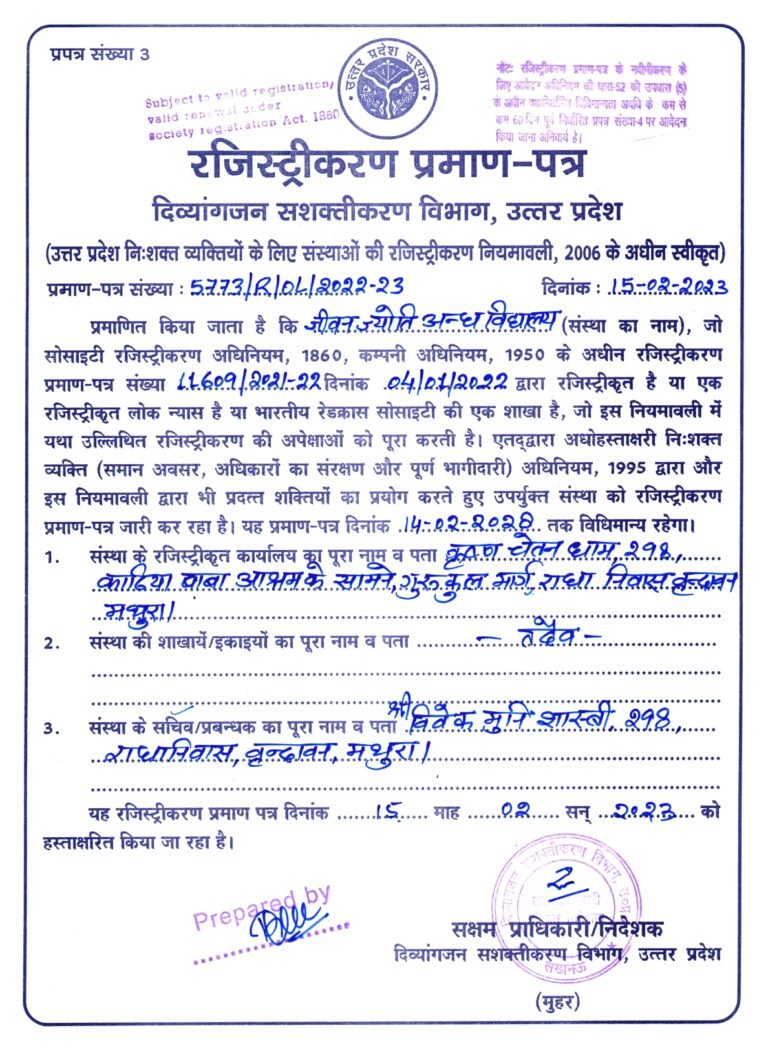 प्रपत्र संख्या 3
Subject to valid registration/
valid renewal under
society registration Act. 1860
उत्तर प्रदेश सरकार
नोटः रजिस्ट्रीकरण प्रमाण-पत्र के नवीनीकरण के
लिए आवेदन अधिनियम की धारा-52 की उपधारा (5)
के अधीन यथानिर्धारित विधिमान्यता अवधि के कम से
कम 60 दिन पूर्व निर्धारित प्रपत्र संख्या-4 पर आवेदन
किया जाना अनिवार्य है।
रजिस्ट्रीकरण प्रमाण-पत्र
दिव्यांगजन सशक्तीकरण विभाग, उत्तर प्रदेश
(उत्तर प्रदेश निःशक्त व्यक्तियों के लिए संस्थाओं की रजिस्ट्रीकरण नियमावली, 2006 के अधीन स्वीकृत)
प्रमाण-पत्र संख्या : 5773/R/OL/2022-23 दिनांक : 15-02-2023
प्रमाणित किया जाता है कि जीवन ज्योति अन्ध विद्यालय (संस्था का नाम), जो
सोसाइटी रजिस्ट्रीकरण अधिनियम, 1860, कम्पनी अधिनियम, 1950 के अधीन रजिस्ट्रीकरण
प्रमाण-पत्र संख्या 11609/2021-22 दिनांक 04/01/2022 द्वारा रजिस्ट्रीकृत है या एक
रजिस्ट्रीकृत लोक न्यास है या भारतीय रेडक्रास सोसाइटी की एक शाखा है, जो इस नियमावली में
यथा उल्लिथित रजिस्ट्रीकरण की अपेक्षाओं को पूरा करती है। एतद्द्वारा अधोहस्ताक्षरी निःशक्त
व्यक्ति (समान अवसर, अधिकारों का संरक्षण और पूर्ण भागीदारी) अधिनियम, 1995 द्वारा और
इस नियमावली द्वारा भी प्रदत्त शक्तियों का प्रयोग करते हुए उपर्युक्त संस्था को रजिस्ट्रीकरण
प्रमाण-पत्र जारी कर रहा है। यह प्रमाण-पत्र दिनांक 14-02-2028 तक विधिमान्य रहेगा।
1. संस्था के रजिस्ट्रीकृत कार्यालय का पूरा नाम व पता कृष्ण चेतन धाम, 298,
काठिया बाबा आश्रम के सामने, गुरुकुल मार्ग, राधा निवास वृन्दावन
मथुरा।
2. संस्था की शाखायें/इकाइयों का पूरा नाम व पता - तदैव -
3. संस्था के सचिव/प्रबन्धक का पूरा नाम व पता श्री विवेक मुनि शास्त्री, 298,
राधानिवास, वृन्दावन, मथुरा।
यह रजिस्ट्रीकरण प्रमाण पत्र दिनांक 15 माह 02 सन् 2023 को
हस्ताक्षरित किया जा रहा है।
Prepared by
दिव्यांगजन सशक्तीकरण विभाग,
लखनऊ
सक्षम प्राधिकारी/निदेशक
दिव्यांगजन सशक्तीकरण विभाग, उत्तर प्रदेश
(मुहर)